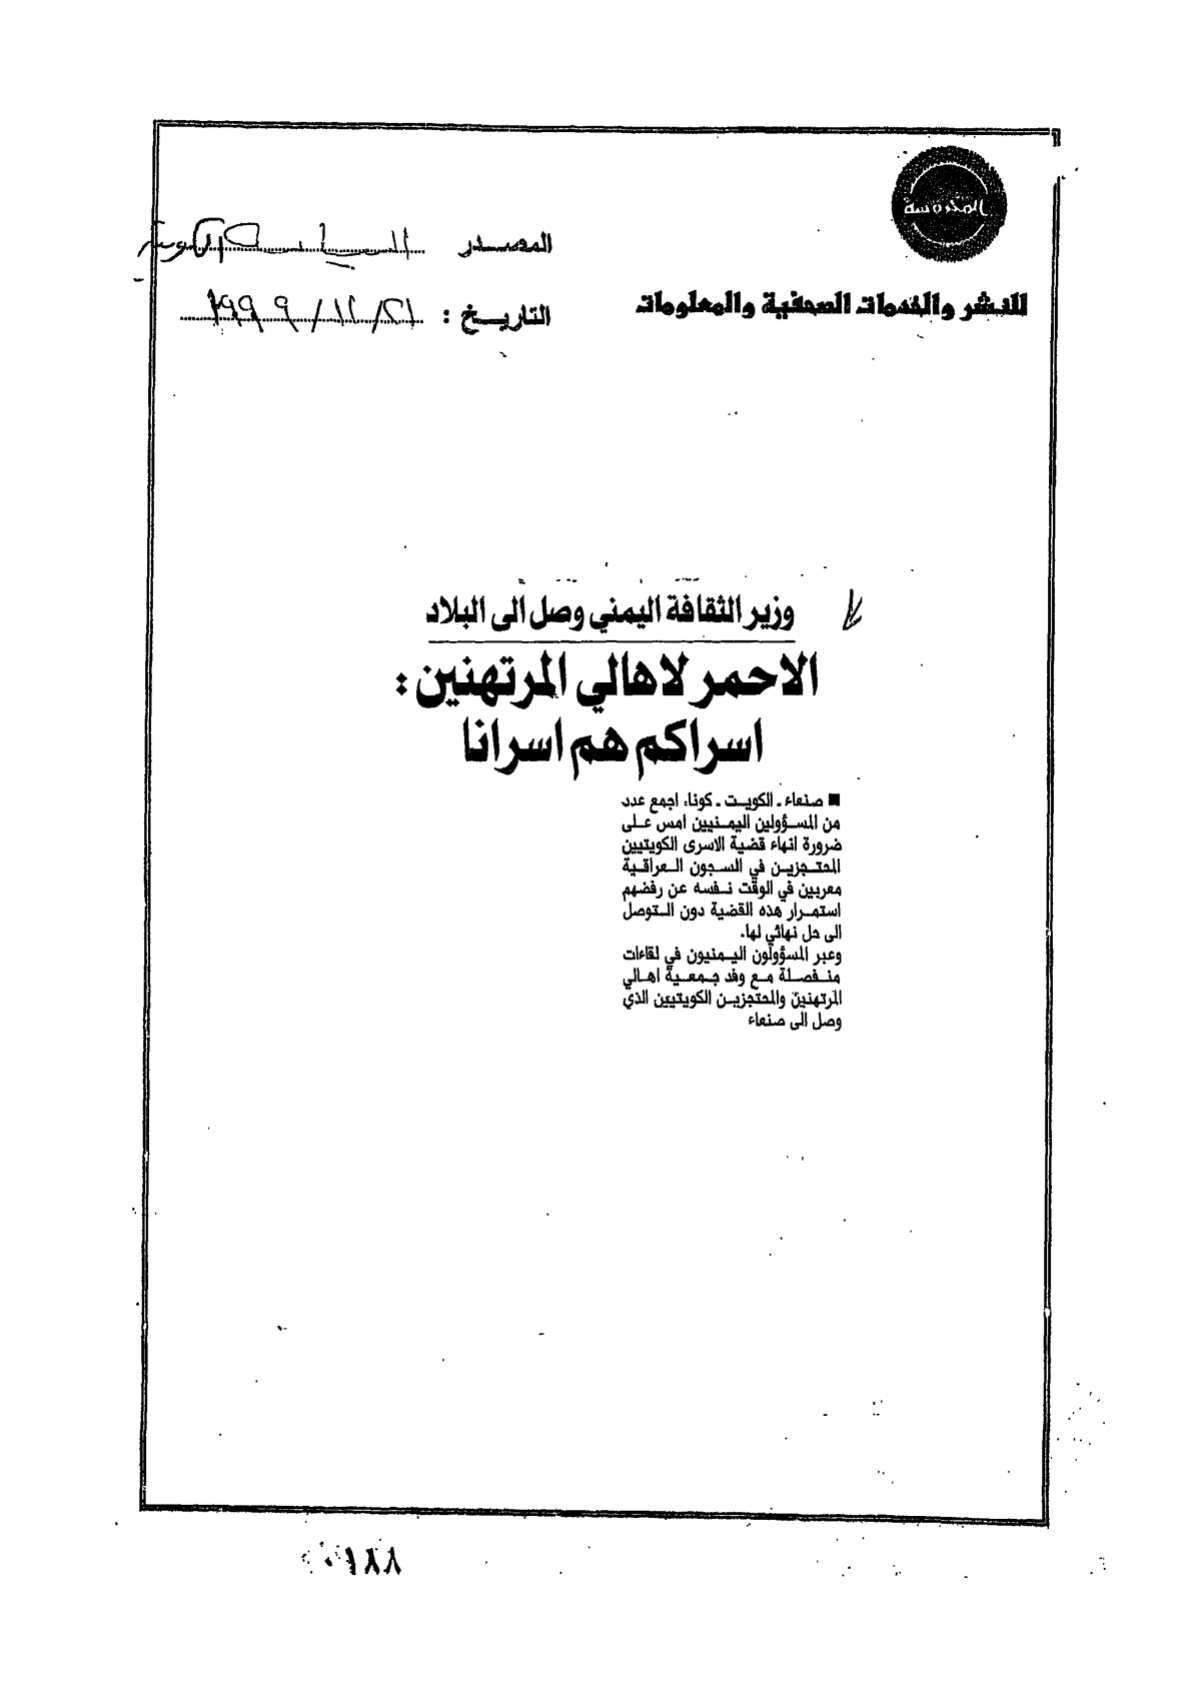 المحروسة
للنشر والخدمات الصحفية والمعلومات
المصدر السياسة الكويتية
التاريخ : ٢١/١١/١٩٩٩
وزير الثقافة اليمني وصل الى البلاد
الاحمر لاهالي المرتهنين :
اسراكم هم اسرانا
■ صنعاء ـ الكويت ـ كونا، اجمع عدد
من المسؤولين اليمنيين امس على
ضرورة انهاء قضية الاسرى الكويتيين
المحتجزين في السجون العراقية
معربين في الوقت نفسه عن رفضهم
استمرار هذه القضية دون التوصل
الى حل نهائي لها.
وعبر المسؤولون اليمنيون في لقاءات
منفصلة مع وفد جمعية اهالي
المرتهنين والمحتجزين الكويتيين الذي
وصل الى صنعاء